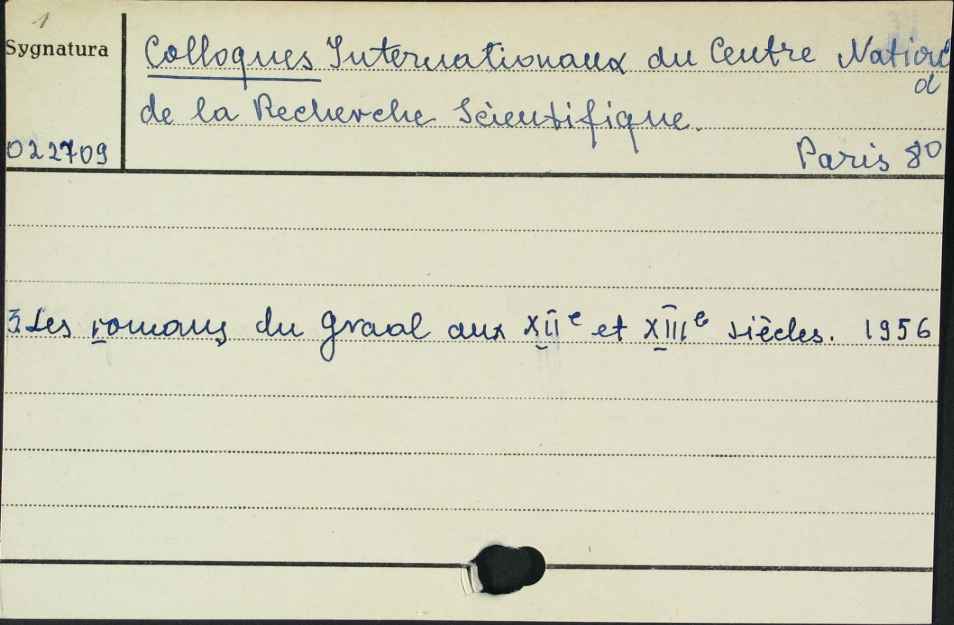 1
Sygnatura
Colloques Internationaux du Centre National
de la Recherche Scientifique.
022709
Paris 8º
3. Les romans du graal aux XIIe et XIIIe siècles. 1956